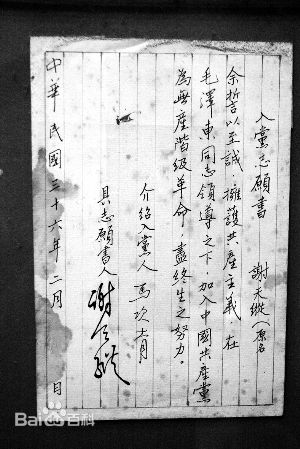 入黨志願書　謝天縱(原名
余誓以至誠.擁護共產主義.在
毛澤東同志領導之下.加入中國共產黨
為無產階級革命.盡終生之努力。
介紹入黨人 馬次青
具志願書人 謝天縱
中華民國三十六年二月　日
Bai百科